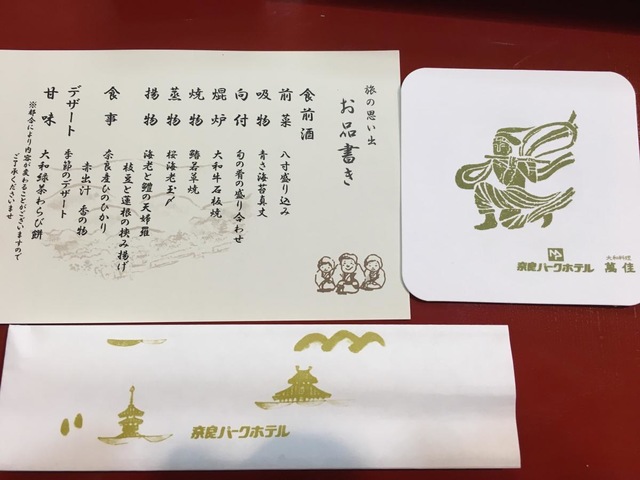 旅の思い出
お品書き
食前酒
前菜 八寸盛り込み
吸物 青さ海苔真丈
向付 旬の肴の盛り合わせ
焜炉 大和牛石板焼
焼物 鰆若草焼
蒸物 桜海老玉〆
揚物 海老と鱧の天婦羅
枝豆と蓮根の挟み揚げ
食事 奈良産ひのひかり
赤出汁 香の物
デザート 季節のデザート
甘味 大和緑茶わらび餅
※都合により内容が変わることがございますので
ご了承くださいませ
奈良パークホテル
大和料理
萬佳
奈良パークホテル